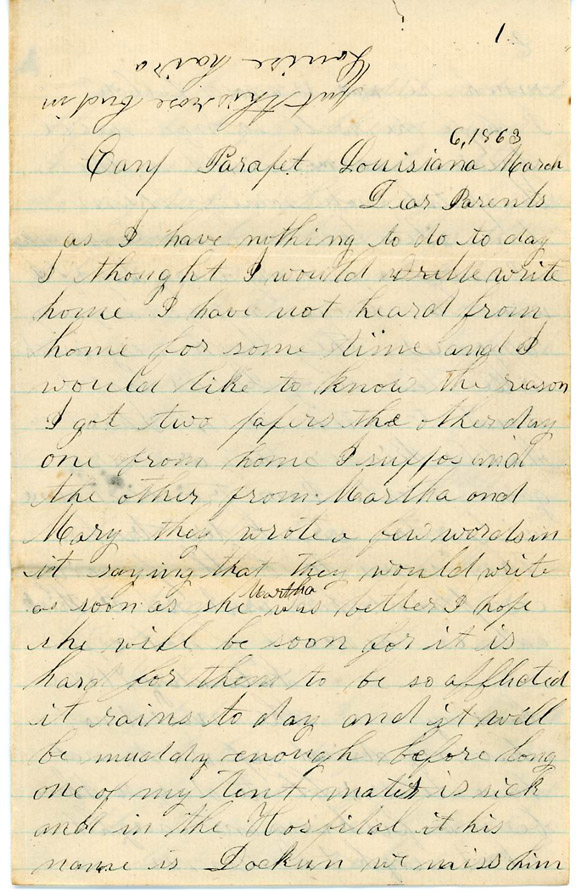 1
Put this rose bud in
Louise hair
6, 1863
Camp Parapet Louisiana March
Dear Parents
as I have nothing to do to day
I thought I would write
home I have not heard from
home for some time and I
would like to know the reason
I got two papers the other day
one from home I suppos and
the other from Martha and
Mary they wrote a few words in
it saying that they would write
as soon as she Martha was better I hope
she will be soon for it is
hard for them to be so afflicted
it rains to day and it will
be muddy enough before long
one of my tent mates is sick
and in the Hospital it his
name is we miss him